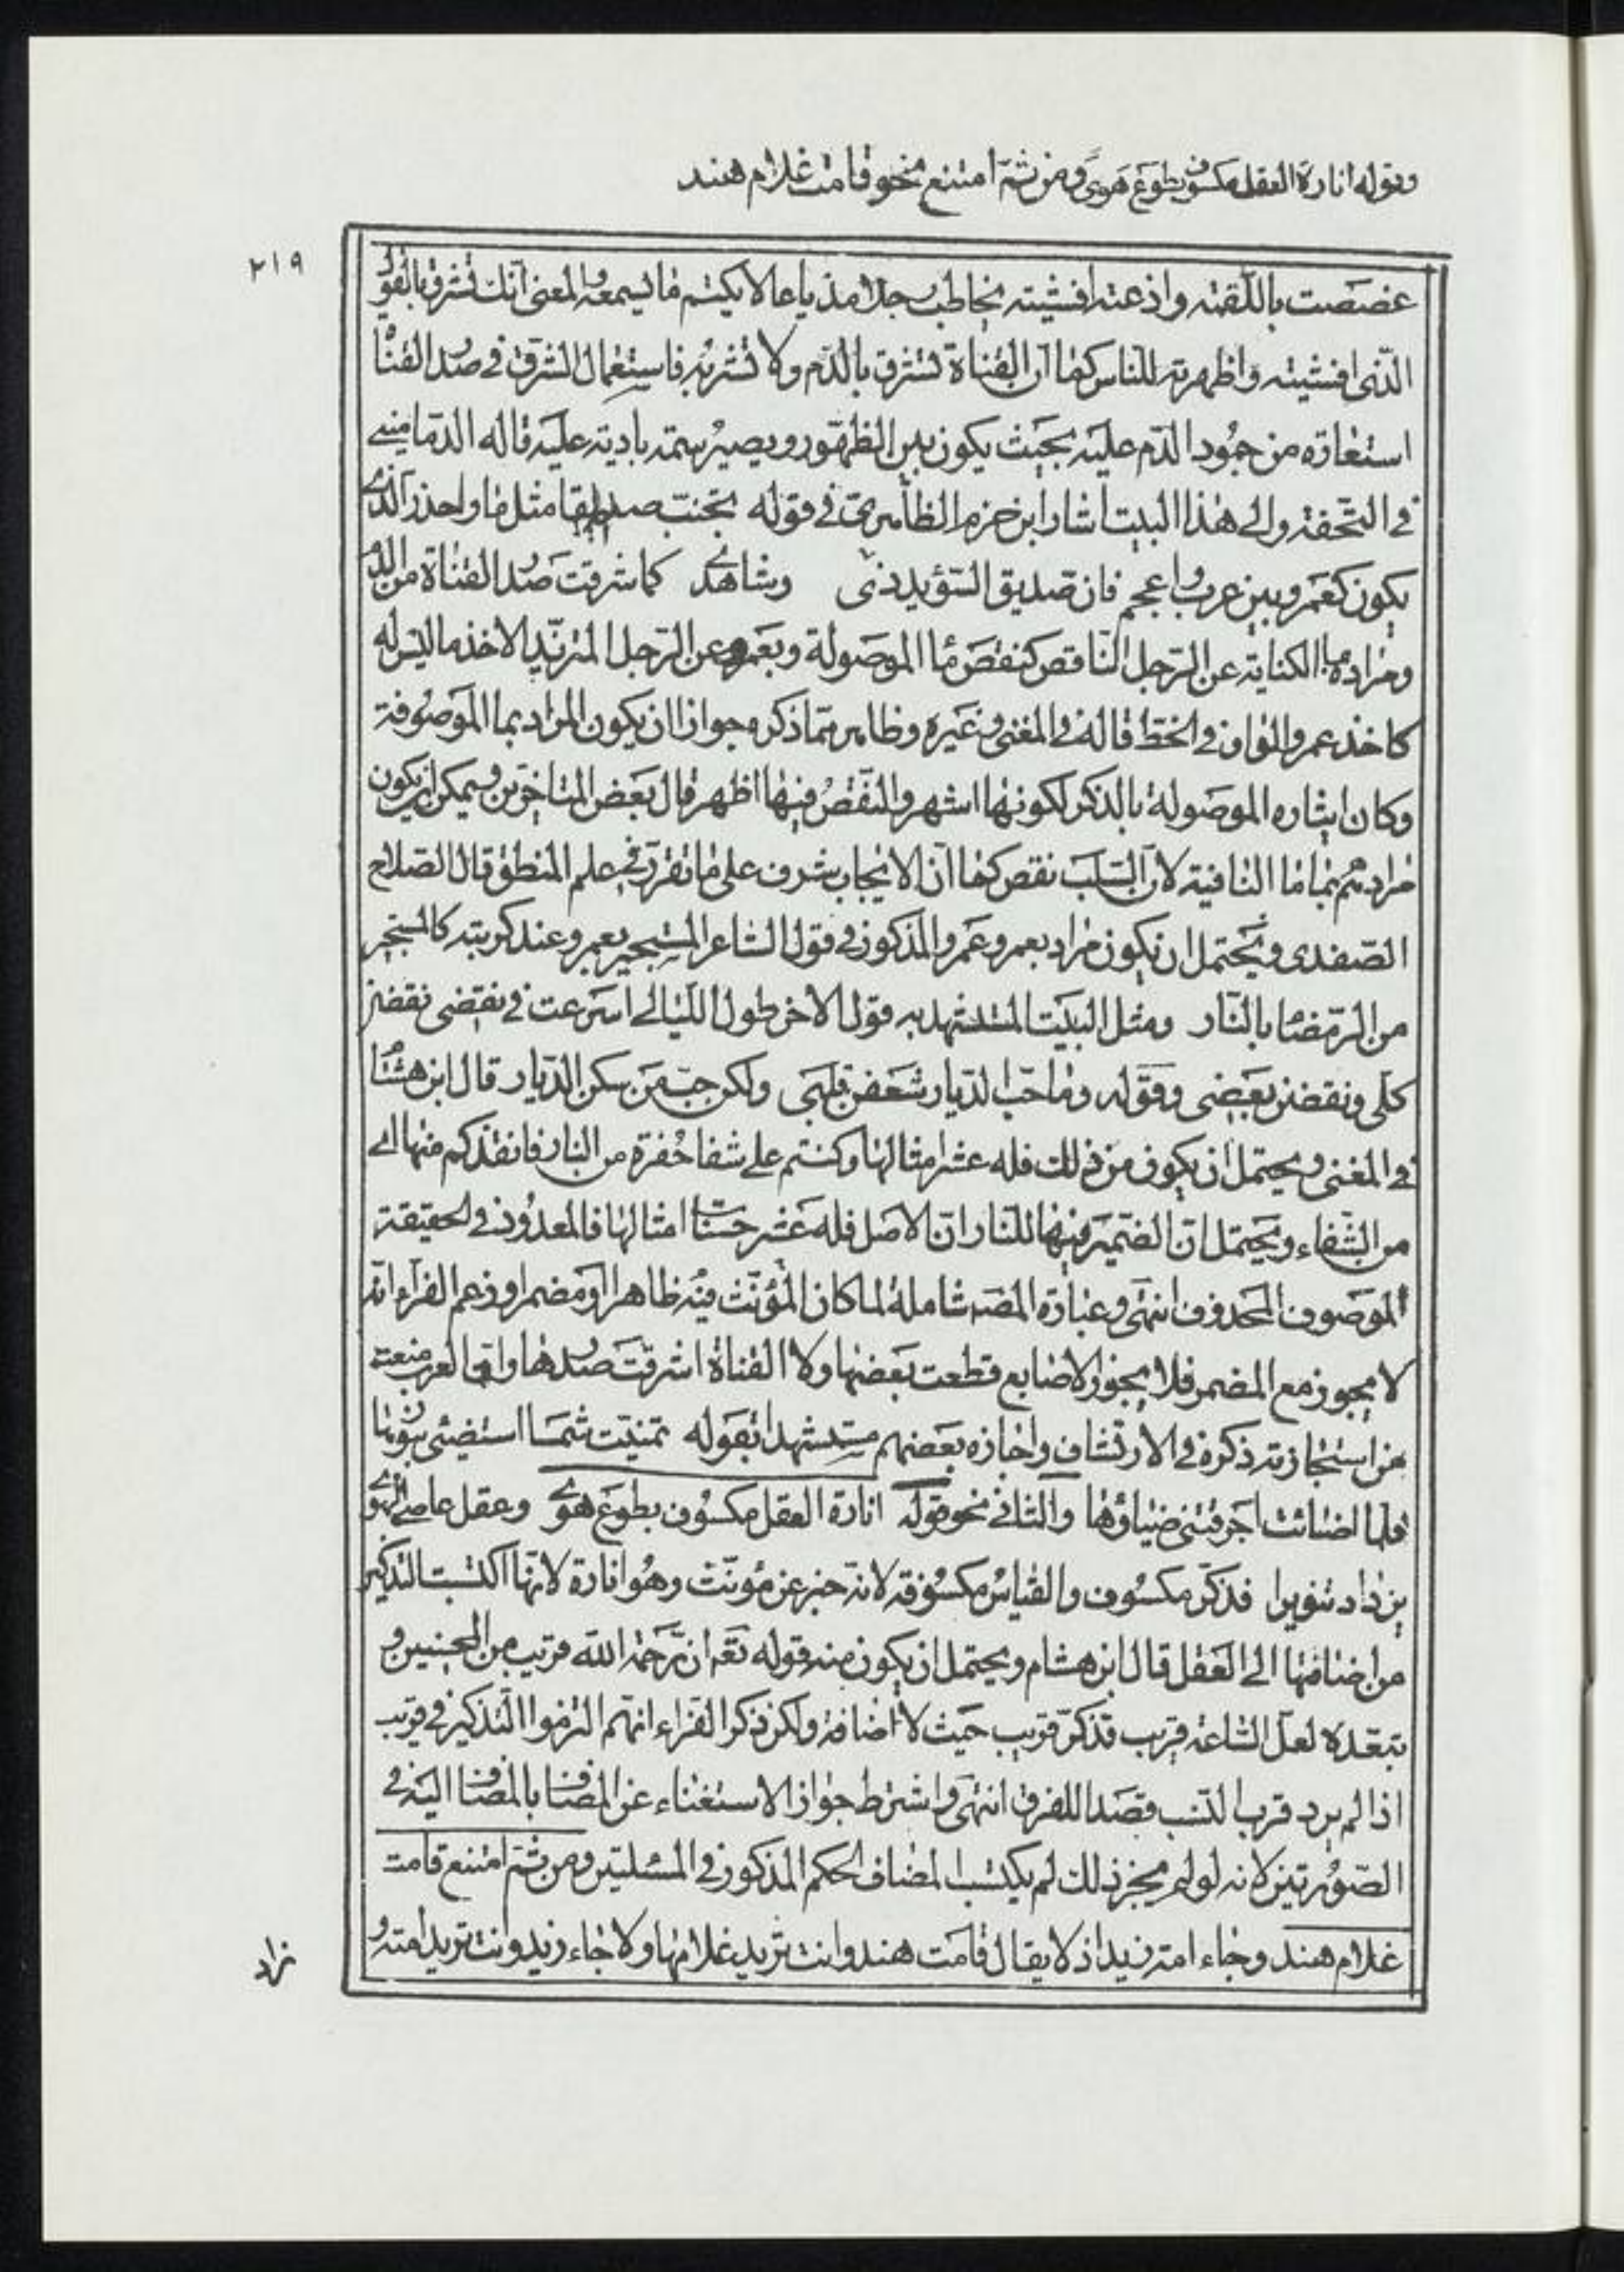 وقوله انارة العقل مكسوف بطوع هوى ومن ثمّ امتنع نحو قامت غلام هند
٢١٩
غصصت باللّقمة واذعته افشيته يخاطب رجلا مذياعا لا يكتم ما يسمعه والمعنى انّك تشرق بالقول
الّذى افشيته واظهرته للناس كما انّ القناة تشرق بالدّم ولا تشربه فاستعمال الشرق فى صدر القناة
استعارة من جمود الدّم عليه بحيث يكون بيّن الظهور ويصير سمته بادية عليه قاله الدّمامينى
فى التحفة والى هذا البيت اشار ابن حزم الظاهرىّ فى قوله تجنّب صديقا مثل ما واحذر الّذى
يكون كعمرو بين عرب واعجم فان صديق السّوء يردى وشاهدى كما شرقت صدر القناة من الدم
ومراده بما الكناية عن الرّجل النّاقص كنقص ما الموصولة وبعمرو عن الرّجل المتزيّد الاخذ ما ليس له
كاخذ عمرو الواو فى الخط قاله فى المغنى وغيره وظاهر ممّا ذكره جواز ان يكون المراد بما الموصوفة
وكان ايثاره الموصولة بالذكر لكونها اشهر والنّقص فيها اظهر قال بعض المتاخرين ويمكن ان يكون
مرادهم بما ما النافية لانّ السّلب نقص كما انّ الايجاب شرف على ما تقرّر فى علم المنطق قال الصّلاح
الصّفدى ويحتمل ان يكون مراد بعمرو عمرو المذكور فى قول الشاعر المستجير بعمرو عند كربته كالمستجير
من الرّمضا بالنّار ومثل البيت المستشهد به قول الاخر طول الليالى اسرعت فى نقضى نقضن
كلّى ونقضن بعضى وقوله وما حبّ الدّيار شغفن قلبى ولكن حبّ من سكن الدّيار قال ابن هشام
فى المغنى ويحتمل ان يكون من ذلك فله عشر امثالها وكنتم على شفا حفرة من النار فانقذكم منها اى
من الشّفاء ويحتمل انّ الضّمير فيها للنار انّ الاصل فله عشر حسنات امثالها فالمعدود فى الحقيقة
الموصوف المحذوف انتهى وعبارة المصـ شاملة لما كان المؤنّث فيه ظاهرا او مضمرا وزعم الفرّاء انّه
لا يجوز مع المضمر فلا يجوز الاصابع قطعت بعضها ولا القناة اشرقت صدرها وانّ العرب منعت
من استجازته ذكره فى الارتشاف واجازه بعضهم مستشهدا بقوله تمنّيت شمسا استضئى بنورها
فلمّا اضائت احرقتنى ضياؤها والثانى نحو قوله انارة العقل مكسوف بطوع هوى وعقل عاصى الهوى
يزداد تنويرا فذكّر مكسوف والقياس مكسوفة لانه خبر عن مؤنّث وهو انارة لانّها اكتسبت التذكير
من اضافتها الى العقل قال ابن هشام ويحتمل ان يكون منه قوله تعـ انّ رحمة اللّه قريب من المحسنين و
يبعّده لعلّ السّاعة قريب فذكّر قريب حيث لا اضافة ولكن ذكر الفرّاء انّهم التزموا التذكير فى قريب
اذا لم يرد قرب النّسب قصدا للفرق انتهى واشترط جواز الاستغناء عن المضاف بالمضاف اليه فى
الصّورتين لانه لو لم يجز ذلك لم يكتسب المضاف الحكم المذكور فى المسئلتين ومن ثمّ امتنع قامت
غلام هند وجاء امة زيد اذ لا يقال قامت هند وانت تريد غلامها ولا جاء زيد وانت تريد امته و
زاد